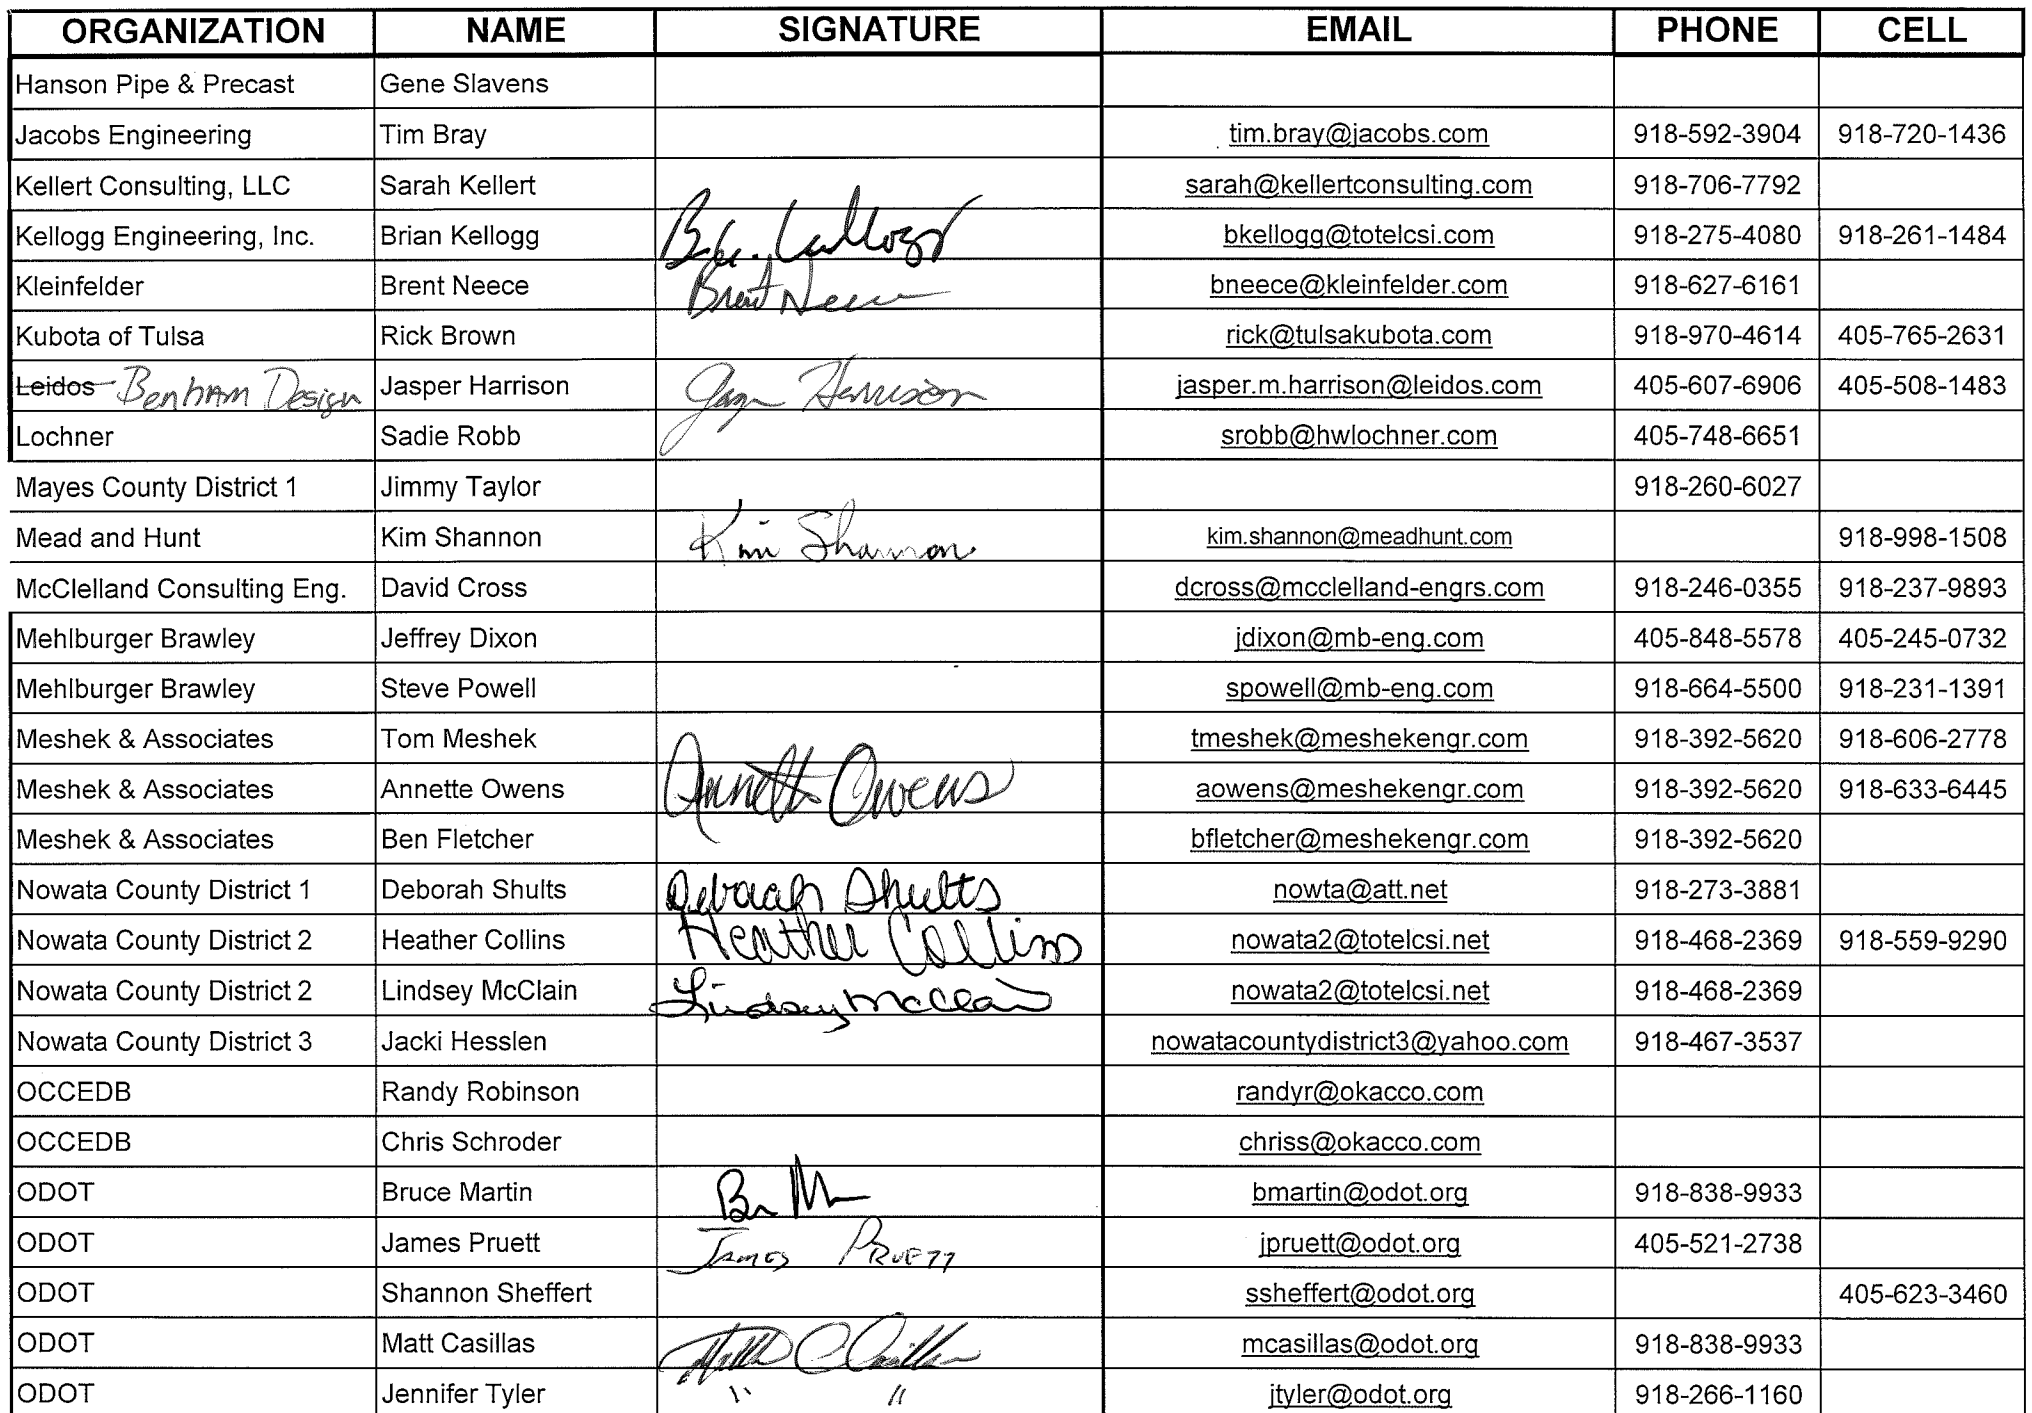 ORGANIZATION NAME SIGNATURE EMAIL PHONE CELL
Hanson Pipe & Precast Gene Slavens
Jacobs Engineering Tim Bray tim.bray@jacobs.com 918-592-3904 918-720-1436
Kellert Consulting, LLC Sarah Kellert sarah@kellertconsulting.com 918-706-7792
Kellogg Engineering, Inc. Brian Kellogg Kellogg bkellogg@totelcsi.com 918-275-4080 918-261-1484
Kleinfelder Brent Neece Brent Neece bneece@kleinfelder.com 918-627-6161
Kubota of Tulsa Rick Brown rick@tulsakubota.com 918-970-4614 405-765-2631
Leidos Benham Design Jasper Harrison Harrison jasper.m.harrison@leidos.com 405-607-6906 405-508-1483
Lochner Sadie Robb srobb@hwlochner.com 405-748-6651
Mayes County District 1 Jimmy Taylor 918-260-6027
Mead and Hunt Kim Shannon Kim Shannon kim.shannon@meadhunt.com 918-998-1508
McClelland Consulting Eng. David Cross dcross@mcclelland-engrs.com 918-246-0355 918-237-9893
Mehlburger Brawley Jeffrey Dixon jdixon@mb-eng.com 405-848-5578 405-245-0732
Mehlburger Brawley Steve Powell spowell@mb-eng.com 918-664-5500 918-231-1391
Meshek & Associates Tom Meshek tmeshek@meshekengr.com 918-392-5620 918-606-2778
Meshek & Associates Annette Owens Annette Owens aowens@meshekengr.com 918-392-5620 918-633-6445
Meshek & Associates Ben Fletcher bfletcher@meshekengr.com 918-392-5620
Nowata County District 1 Deborah Shults Deborah Shults nowta@att.net 918-273-3881
Nowata County District 2 Heather Collins Heather Collins nowata2@totelcsi.net 918-468-2369 918-559-9290
Nowata County District 2 Lindsey McClain Lindsey McClain nowata2@totelcsi.net 918-468-2369
Nowata County District 3 Jacki Hesslen nowatacountydistrict3@yahoo.com 918-467-3537
OCCEDB Randy Robinson randyr@okacco.com
OCCEDB Chris Schroder chriss@okacco.com
ODOT Bruce Martin bmartin@odot.org 918-838-9933
ODOT James Pruett James Pruett jpruett@odot.org 405-521-2738
ODOT Shannon Sheffert ssheffert@odot.org 405-623-3460
ODOT Matt Casillas mcasillas@odot.org 918-838-9933
ODOT Jennifer Tyler " " jtyler@odot.org 918-266-1160